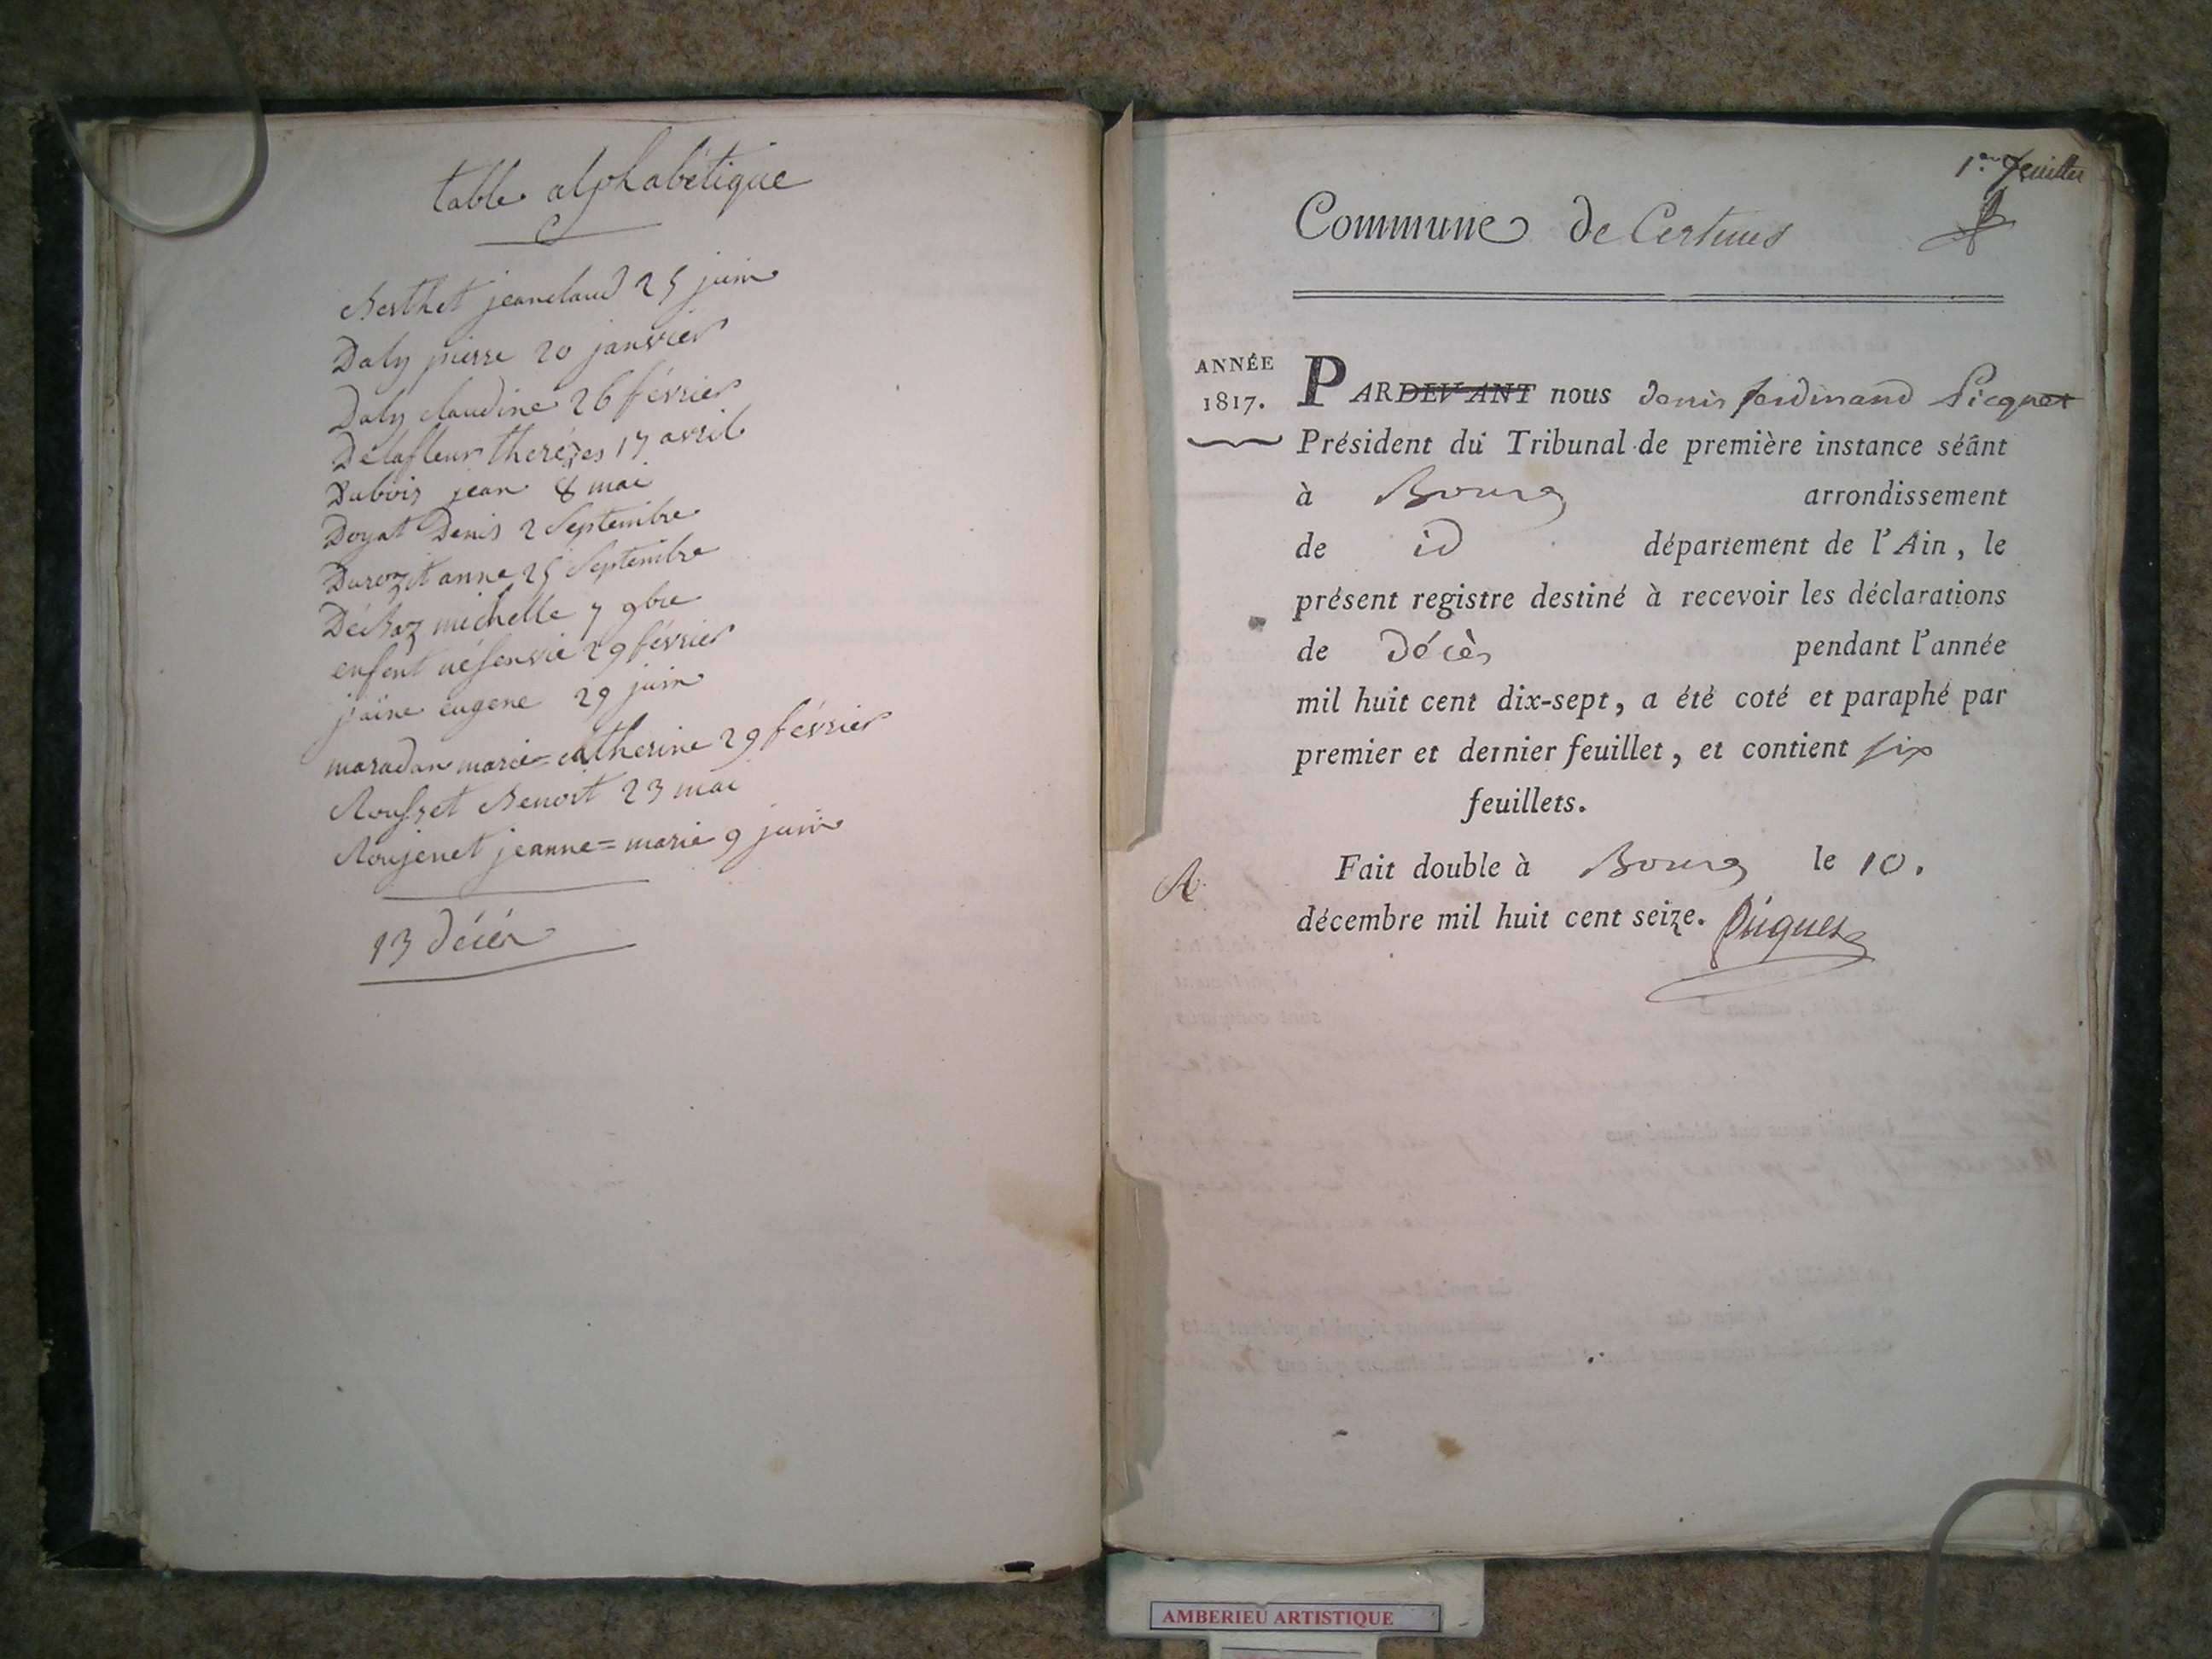 table alphabétique
Berthet jeanclaud 25 juin
Daly pierre 20 janvier
Daly claudine 26 février
Délafleur therézes 17 avril
Dubois jean 8 mai
Doyat Denis 2 Septembre
anne 25 Septembre
michelle 7 9bre
enfent né senvie 29 février
jaine eugene 29 juin
maradan marie=catherine 29 février
Rousset Benoit 23 mai
Roujenet jeanne=marie 9 juin
13 décés
1er feuillet
Commune de Certines
ANNÉE
1817.
PARDEVANT nous denis ferdinand Picquet
Président du Tribunal de première instance séant
à Bourg arrondissement
de id département de l'Ain, le
présent registre destiné à recevoir les déclarations
de décès pendant l'année
mil huit cent dix-sept, a été coté et paraphé par
premier et dernier feuillet, et contient six
feuillets.
Fait double à Bourg le 10.
décembre mil huit cent seize.
AMBERIEU ARTISTIQUE